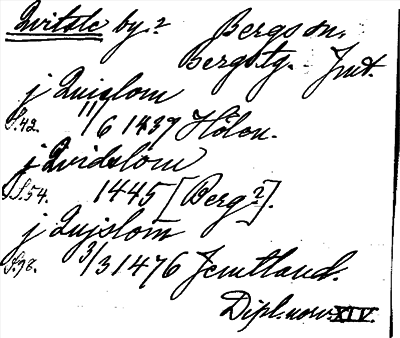 Qvitsle by? Bergs sn.
Bergs tg. Jmt.
j Quislom
S.42. 11/6 1437 Hålen.
j Qvidslom
S.54. 1445 [Berg?].
j Qujslom
S.98. 3/3 1476 Jemtland.
Dipl. norv. XIV.